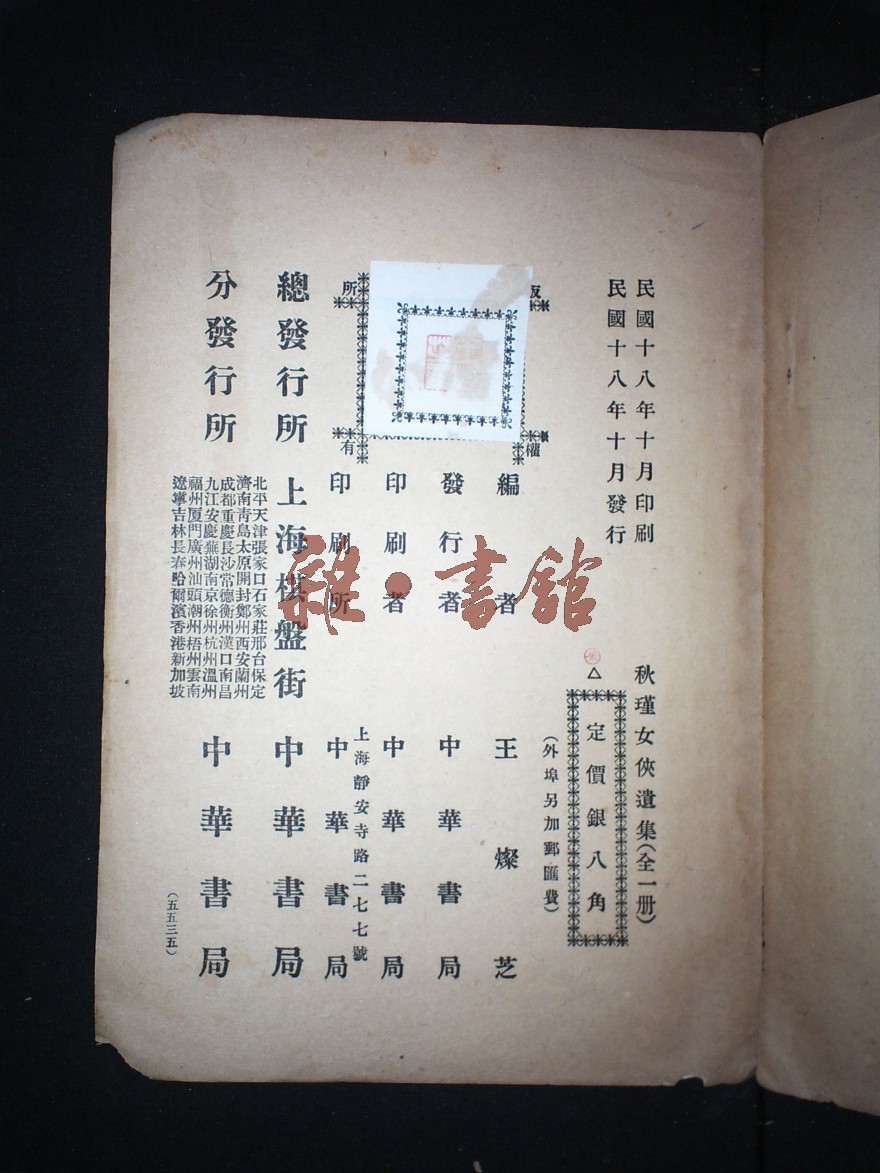 民國十八年十月印刷
民國十八年十月發行
秋瑾女俠遺集(全一册)
定價銀八角
(外埠另加郵匯費)
權
所
有
編者 王燦芝
發行者 中華書局
印刷者 中華書局
上海靜安寺路二七七號
印刷所 中華書局
總發行所 上海棋盤街 中華書局
分發行所 中華書局
北平天津張家口石家莊邢台保定
濟南青島太原開封鄭州西安蘭州
成都重慶長沙常德衡州漢口南昌
九江安慶蕪湖南京徐州杭州溫州
福州厦門廣州汕頭潮州梧州雲南
遼寧吉林長春哈爾濱香港新加坡
(五五三五)
雜·書館